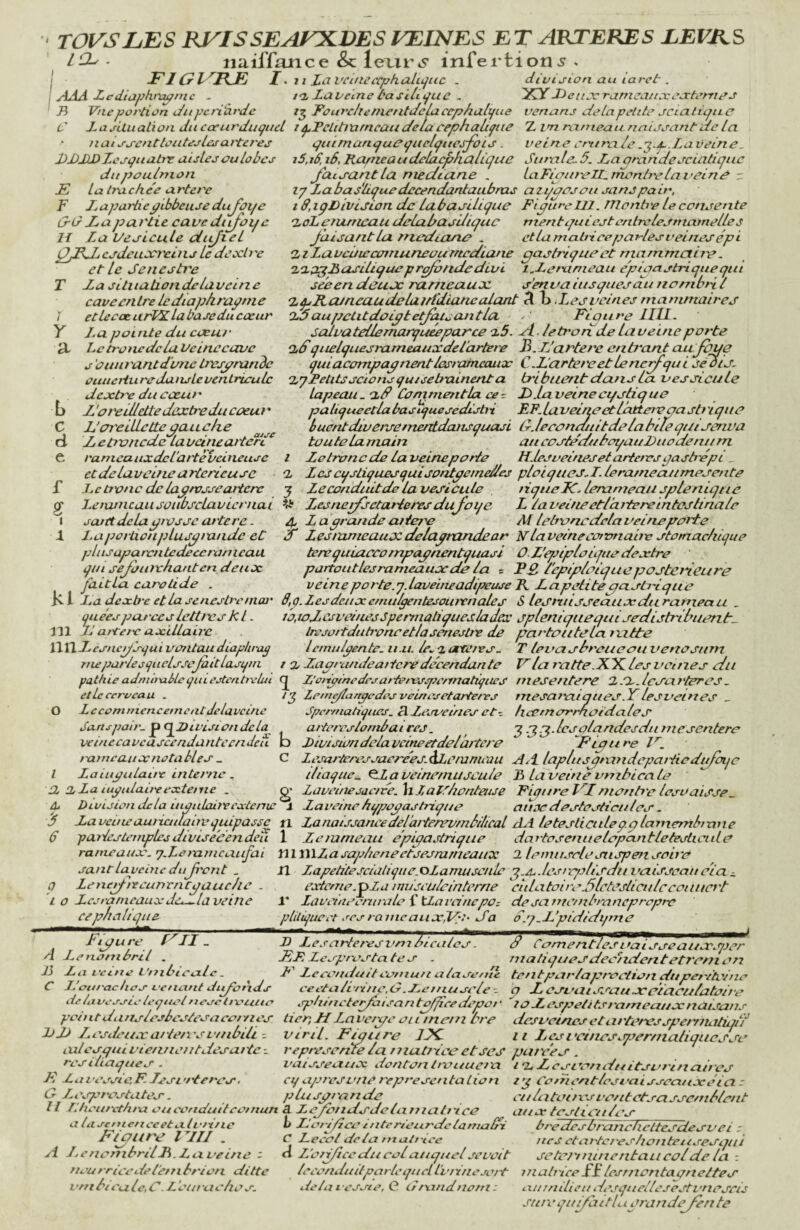 TOVS LES RVISSEAVX DES VEINES ET ARTERES LEVRS
naissance & leurs infertions.
FIGVRE I.
AAA Le diaphragme.
B Vne portion du periarde
C La situation du cœur duquel
naissent toutes les arteres
DDDD Les quatre aisles ou lobes
du poulmon
E la trachée artere
F La partie gibbeuse du foye
GG La partie cave du foye
H La Vesicule du fiel
Les deux reins le dextre
et le Senestre
T La situation de la veine
cave entre le diaphragme
et le cœur VX la base du cœur
Y La pointe du cœur
a Le tronc de la Veine cave
s'ouurant d'vne tresgrande
ouuerture dans le ventricule
dextre du cœur
b L'oreillette dextre du cœur
c L'oreillette gauche
d Le tronc de la veine arterieuse
e rameaux de l'artere veineuse
et de la veine arterieuse
f Le tronc de la grosse artere
g Le rameau soubsclavier nai
sant de la grosse artere.
1 La portion plus grande et
plus aparente de ce rameau
qui se fourchant en deux
fait la carotide.
kl La dextre et la senestre mar
quées par ces lettres kl.
m L'artere axillaire
nn Les nerfs qui vont au diaphrag
me par lesquels se fait la sym
pathie admirable qui est entre lui
et le cerveau.
O Le commencement de la veine
sans pair. p q Division de la
veine cave ascendante en deu
rameaux notables.
1 La iugulaire interne.
2 2 La iugulaire externe.
4 Division de la iugulaire externe
5 La veine auriculaire qui passe
6 par les temples divisée en deu
rameaux. 7. Le rameau fai
sant la veine du front.
9 Le nerf recurrent gauche.
10 Les rameaux de la veine
cephalique
11 La veine cephalique.
12 La veine basilique.
13 Fourchement de la cephalique
14 Petit rameau de la cephalique
qui manque quelquesfois.
15, 16, 16, Rameau de la cephalique
faisant la mediane.
17 La basilique decendante au bras
18, 19 Division de la basilique
20 Le rameau de la basilique
faisant la mediane.
21 La veine commune ou mediane
22 23 Basilique profonde divi
see en deux rameaux
24 Rameau de la mediane alant
25 au petit doigt et faisant la
salvatelle marquée par ce 25.
26 quelques rameaux de l'artere
qui acompagnent les rameaux
27 Petits scions qui se trainent a
la peau. 28 Comment la ce-
phalique et la basique se distri
buent diversement dans quasi
toute la main
1 Le tronc de la veine porte
2 Les cystiques qui sont gemelles
3 Le conduit de la vesicule
Les nerfs et arteres du foye
4 La grande artere
5 Les rameaux de la grande ar
tere qui accompagnent quasi
partout les rameaux de la
veine porte. 7. la veine adipeuse
8, 9. Les deux emulgentes ou renales
10, 10, Les veines Spermatiques la dex
tre sort du tronc et la senestre de
l'emulgente. 11. 11. les 2 arteres.
12 La grande artere decendante
q L'origine des arteres spermatiques
13 Le meslange des veines et arteres
Spermatiques. a Les veines et
arteres lombaires.
b Division de la veine et de l'artere
c Les arteres sacrées. d Le rameau
iliaque. e La veine musculé
g La veine sacrée. h La V. honteuse
i La veine hypogastrique
n La naissance de l'artere vmbilical
l Le rameau epigastrique
mm La saphene et ses rameaux
n La petite sciatique. o La musculé
externe. p La musculé interne
r La veine crurale f t La veine po-
plitique et ses rameaux, V. Sa
division au iaret.
XY Deux rameaux externes
venans de la petite sciatique
Z vn rameau naissant de la
veine crurale. 3. 4. La veine
Surale. 5. La grande sciatique
La Figure II. montre la veine
azygos ou sans pair,
Figure III. montre le consente
ment qui est entre les mamelles
et la matrice par les veines epi
gastrique et mammaire.
1. Le rameau epigastrique qui
s'en va iusques au nombril
a b. Les veines mammaires
Figure IIII.
A. le tron de la veine porte
B. L'artere entrant au foye
C. L'artere et le nerf qui se dis-
tribuent dans la vessicule
D. La veine cystique
EF. La veine et l'artere gastrique
G. le conduit de la bile qui s'en va
au costé du boyau Duodenum
H. les veines et arteres gastrepi
ploiques. I. le rameau mesente
rique K. le rameau splenique
L la veine et l'artere intestinale
M le tronc de la veine porte
N la veine coronaire stomachique
O. L'epiploique dextre
PQ l'epiploique posterieure
R. La petite gastrique
S les ruisseaux du rameau
splenique qui se distribuent
par toute la ratte
T le vas breue ou venosum
V la ratte. XX les veines du
mesentere 2. 2. les arteres
mesaraiques. Y les veines
hæmorrhoidales
3 3 3. les glandes du mesentere
Figure V.
AA la plus grande partie du foye
B la veine vmbicale
Figure VI montre les vaisse-
aux des testicules.
AA le testicule 9 9 la membrane
dartos enuelopant le testicule
2 le muscle suspensoire
3. 4. les replis du vaisseau eia-
culatoire 5 le testicule couuert
de sa membrane propre
6. 7. L'pididyme
Figure VII.
A Le nombril.
B La veine Vmbicale.
C L'ourachos venant du fonds
de la vessie lequel ne se trouue
point dans les bestes a cornes
DD Les deux arteres vmbili-
cales qui viennent des arte-
res iliaques.
E La vessie F. Les vrteres,
G Les prostates.
H L'heurethra ou conduit comun
a la semence et a l'vrine
Figure VIII.
A Le nombril B. La veine
nourrice de l'embrion ditte
vmbicale, C. L'ourachos.
D Les arteres vmbicales.
EE Les prostates.
F Le conduit comun a la seme
ce et a l'vrine, G. Le muscle
sphincter faisant office de por-
tier, H La verge ou membre
viril. Figure IX
represente la matrice et ses
vaisseaux dont on trouuera
cy apres vne representation
plus grande
a Le fonds de la matrice
b L'orifice interieur de la matri
c Le col de la matrice
d L'orifice du col auquel se voit
le conduit par lequel l'vrine sort
de la vessie, e Grand nom-
8 Coment les vaisseaux sper
matiques decendent et remon
tent par la production du peritoine
9 Les vaisseaux eiaculatoire
10 Les petits rameaux naisans
des veines et arteres spermatiqu
11 Les veines spermatiques se
parées.
12 Les conduits vrinaires
13 Coment les vaisseaux eia-
culatoires vont et s'assemblent
aux testicules
bre des branchettes des vei-
nes et arteres honteuses qui
se terminent au col de la
matrice ff les montagnettes
au milieu desquelles est vne scis
sure qui fait la grande fente